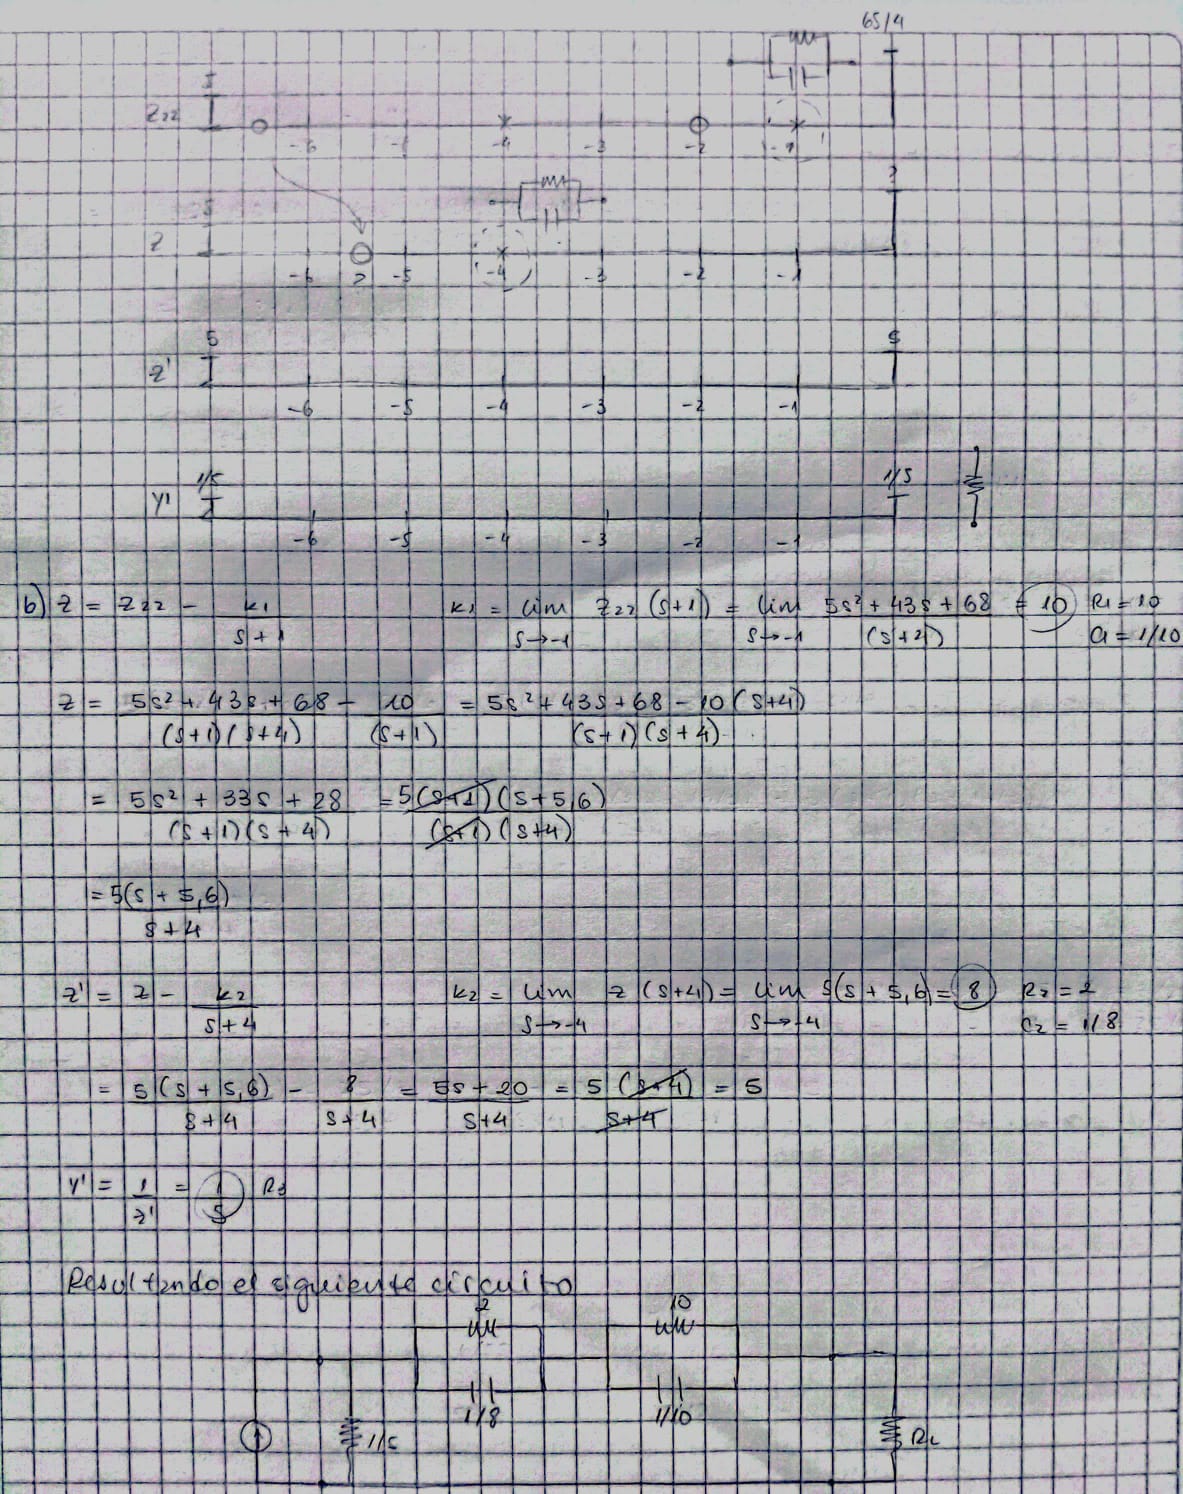 65/4
Z22
-6 -5 -4 -3 -2 -1
7
5
Z
-6 ? -5 -4 -3 -2 -1
5 5
Z'
-6 -5 -4 -3 -2 -1
1/5 1/5
Y'
-6 -5 -4 -3 -2 -1
b) Z = Z22 - k1/(s+1) k1 = lim s→-1 Z22 (s+1) = lim s→-1 (5s² + 43s + 68)/(s+4) = 10 R1 = 10 C1 = 1/10
Z = (5s² + 43s + 68)/((s+1)(s+4)) - 10/(s+1) = (5s² + 43s + 68 - 10(s+4))/((s+1)(s+4))
= (5s² + 33s + 28)/((s+1)(s+4)) = 5(s+1)(s+5,6)/((s+1)(s+4))
= 5(s + 5,6)/(s+4)
Z' = Z - k2/(s+4) k2 = lim s→-4 Z (s+4) = lim s→-4 5(s + 5,6) = 8 R2 = 2 C2 = 1/8
= 5(s + 5,6)/(s+4) - 8/(s+4) = (5s + 20)/(s+4) = 5(s+4)/(s+4) = 5
Y' = 1/Z' = 1/5 R3
Resultando el siguiente circuito
2 10
1/8 1/10
1/5 RL